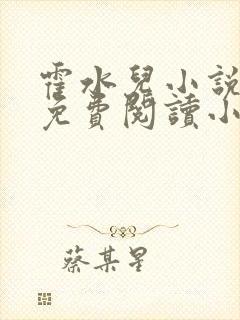 霍水兒小說
免費閱讀小
蔡某星